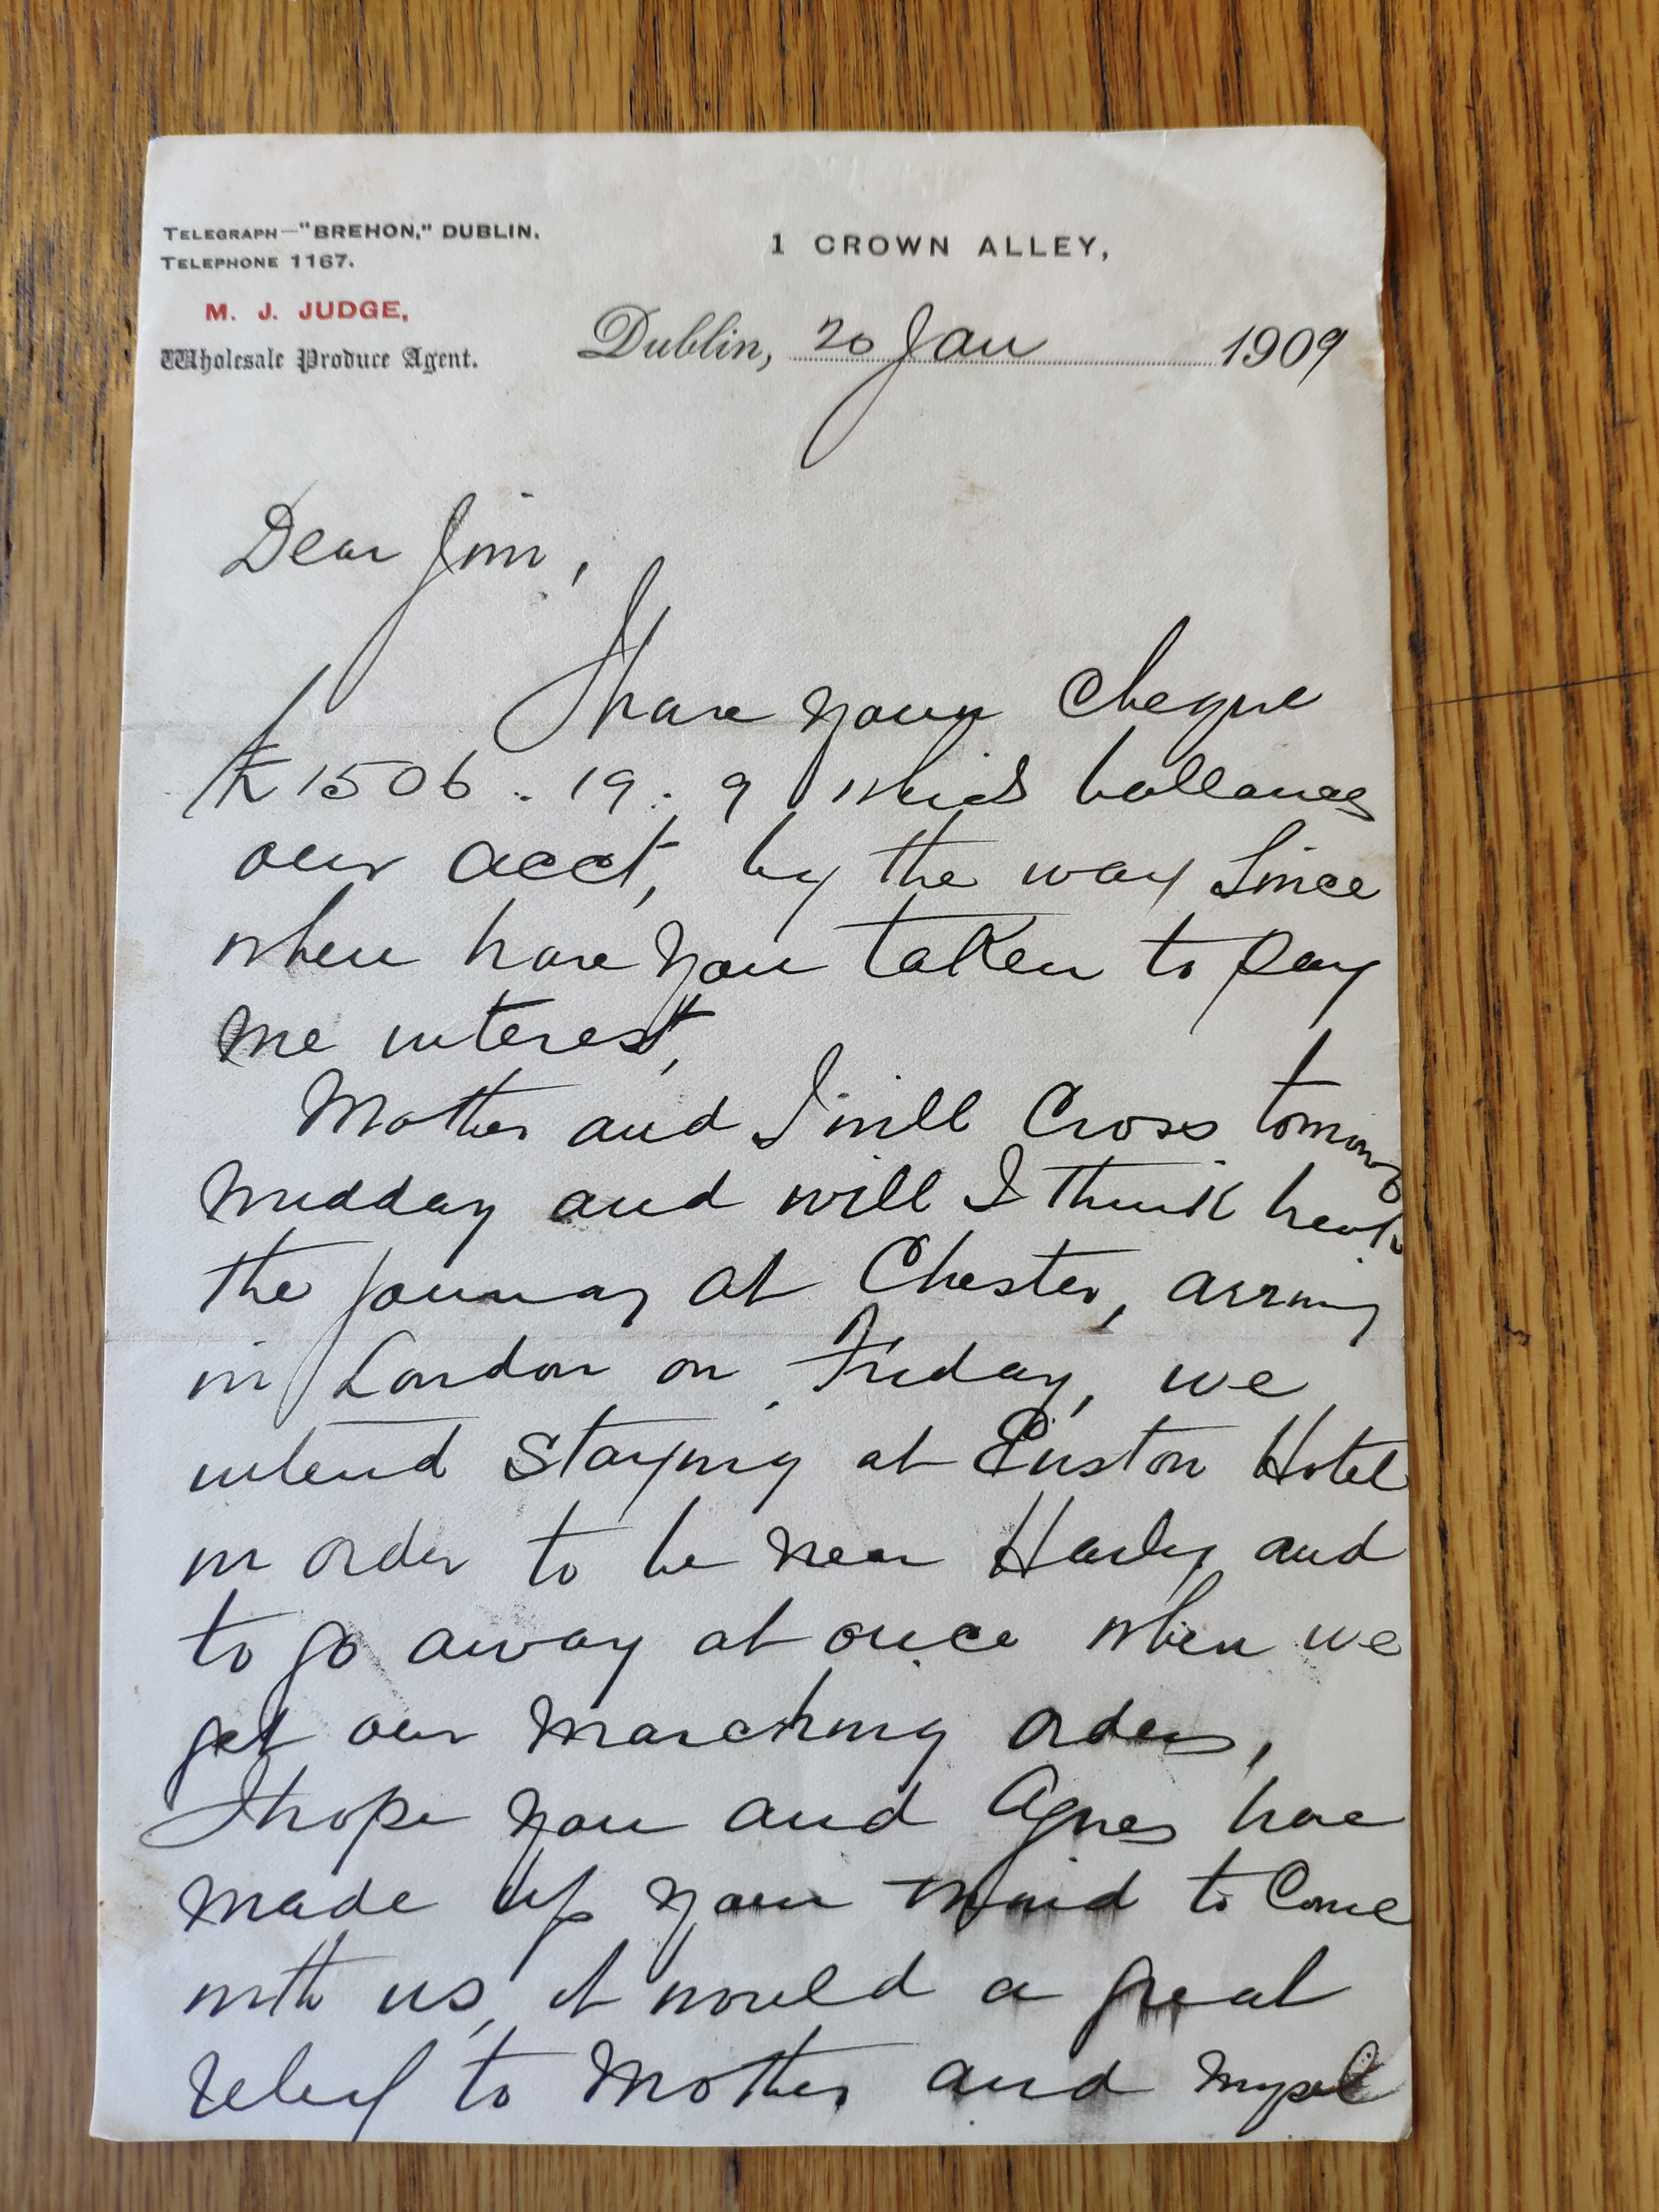 TELEGRAPH—"BREHON," DUBLIN.
TELEPHONE 1167.
M. J. JUDGE,
Wholesale Produce Agent.
1 CROWN ALLEY,
Dublin, 20 Jan 1909
Dear Jim,
I have your cheque
£1506.19.9 which ballances
our acct, by the way since
when have you taken to pay
me interest,
Mother and I will Cross tomorrow
midday and will I think break
the journey at Chester, arriving
in London on Friday, we
intend Staying at Euston Hotel
in order to be near Harley and
to go away at once when we
get our marching orders,
I hope you and Agnes have
made up your mind to Come
with us, it would a great
relief to Mother and myself